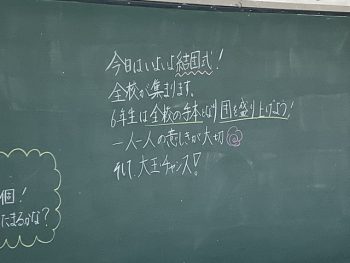 今日はいよいよ結団式!
全校が集まります。
6年生は全校の手本となり団を盛り上げよう!
一人一人の意しきが大切
そして、大玉チャンス!
個!
たまるかな?